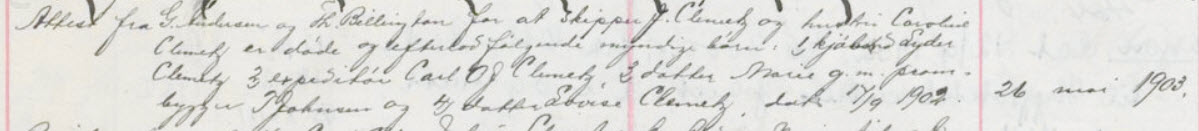 Attest fra G. Andersen og Th. Billington for at skipper J. Clemetz og hustru Caroline
Clemetz er døde og efterlod følgende myndige børn: 1) kjøbmd Eyder
Clemetz 2) expeditør Carl O J Clemetz, 3 datter Marie g. m. pram-
bygger T Johnsen og 4) datter Lovise Clemetz, dat. 17/9 1902. 26 mai 1903.